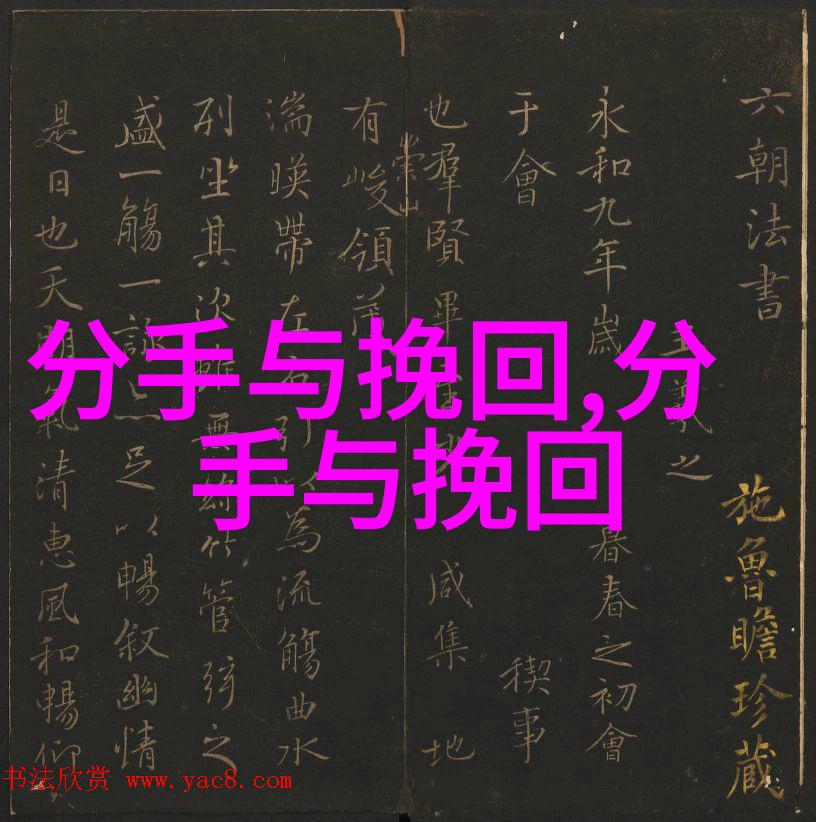 分手与挽回,分
手与挽回
六朝法書
王羲之
施魯瞻珍藏
永和九年歲暮春之初會
于會稧事
也羣賢畢咸集地
有崇山峻領茂
湍暎帶左右引以為流觴曲水
列坐其次雖無絲竹管弦之
盛一觴一詠足以暢敘幽情
是日也天朗氣清惠風和暢仰
书法欣赏 www.yac8.com